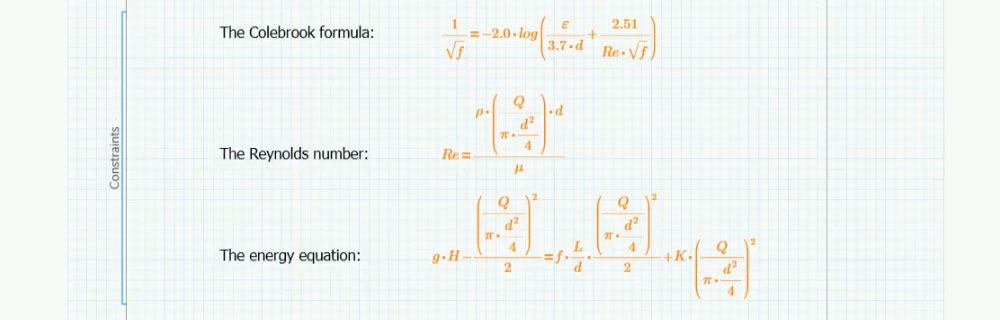 Constraints
The Colebrook formula: 1/√f = −2.0·log(ε/(3.7·d) + 2.51/(Re·√f))
The Reynolds number: Re = (ρ·(Q/(π·d²/4))·d)/μ
The energy equation: g·H − (Q/(π·d²/4))²/2 = f·L/d·(Q/(π·d²/4))²/2 + K·(Q/(π·d²/4))²